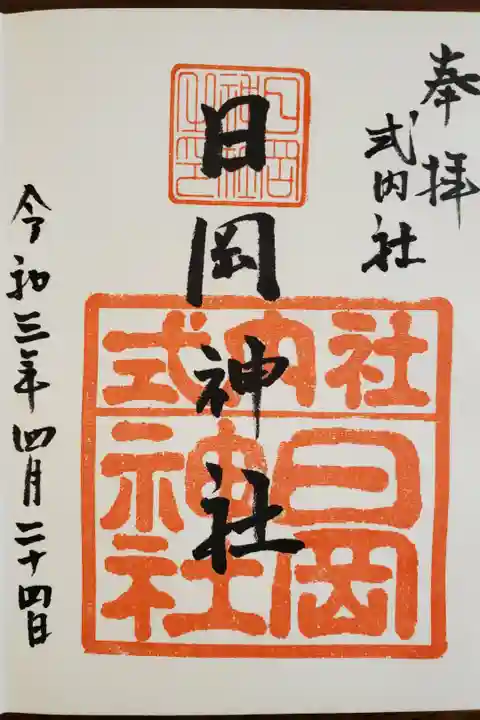 奉拝
式内社
日岡神社
令和三年四月二十四日
日岡神社之印
式内社
日岡
神社